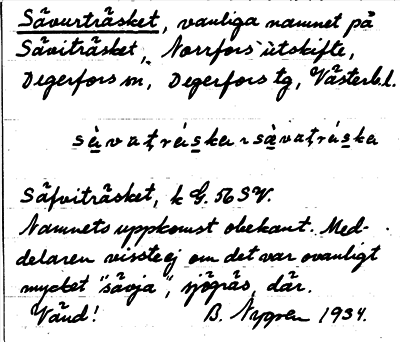 Sävurträsket, vanliga namnet på
Säviträsket, Norrfors utskifte,
Degerfors sn, Degerfors tg, Västerb.l.
sàvatráska ~ sàvatráska
Säfviträsket, k G. 56 SV.
Namnets uppkomst obekant. Med-
delaren visste ej om det var ovanligt
mycket "sävja", sjögräs, där.
Vänd! B. Nygren 1934.